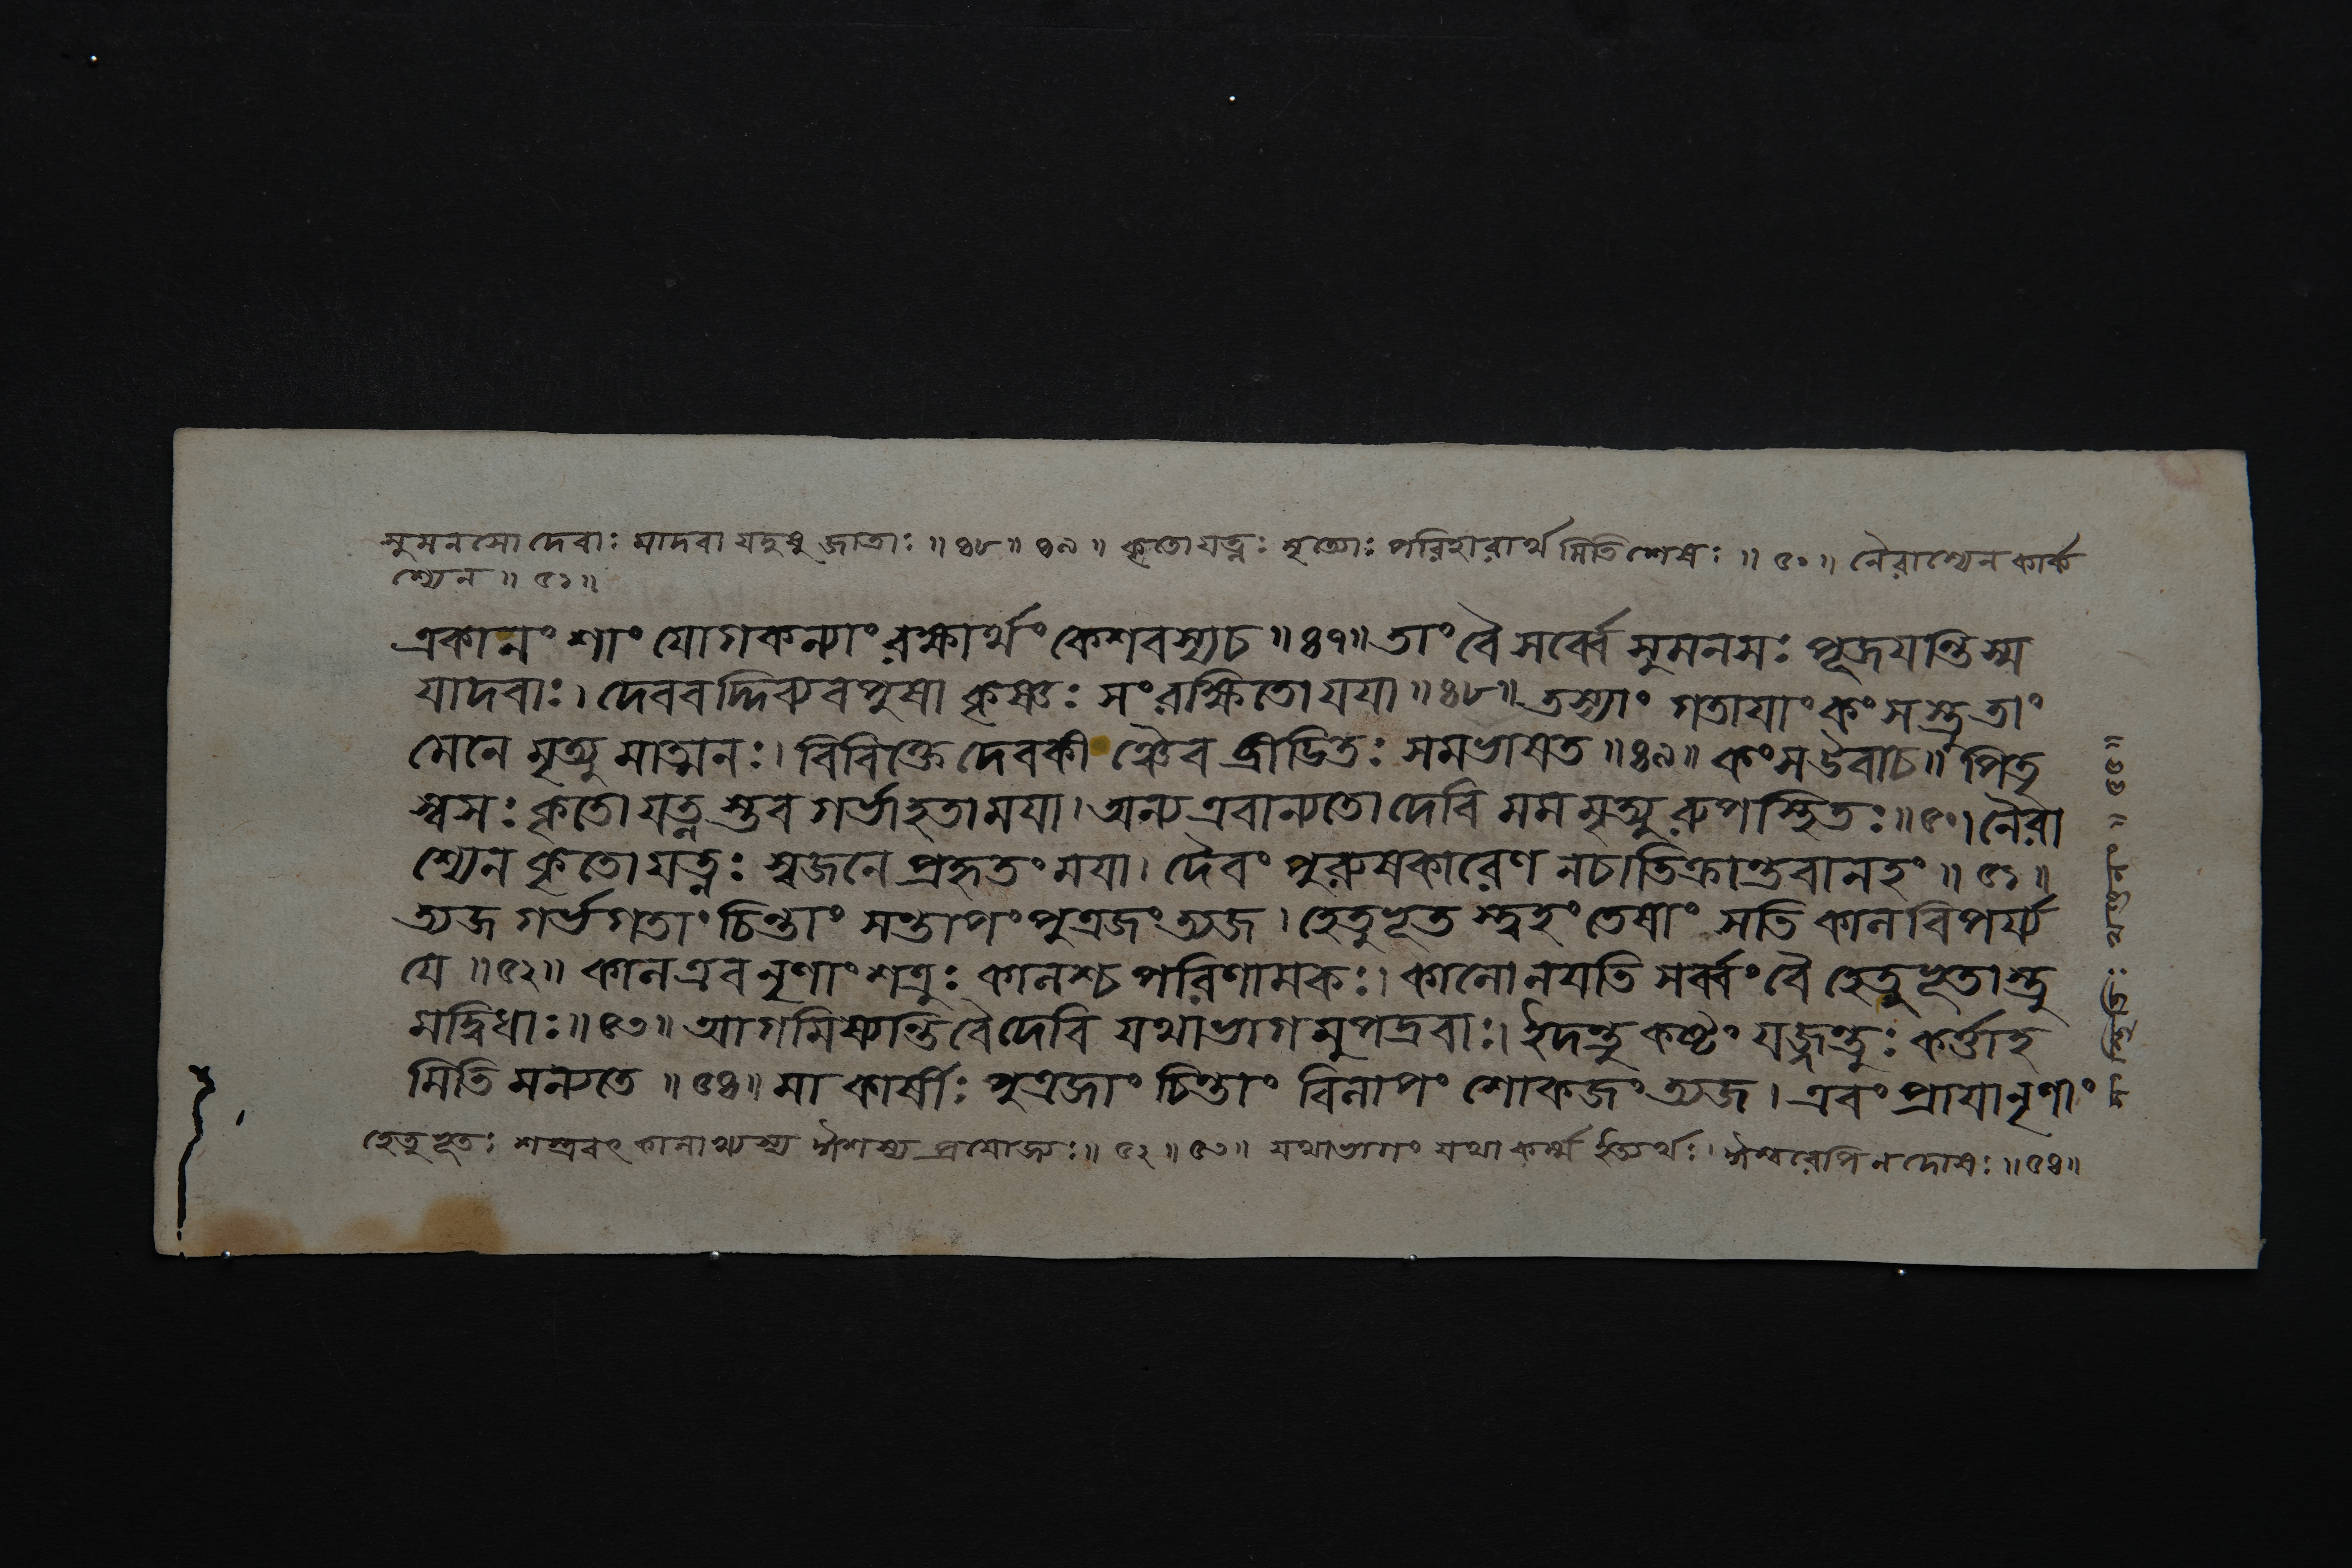 সুমনসো দেবাঃ যাদবা যদুষু জাতাঃ ॥ ৪৮ ॥ ৪৯ ॥ কৃতো যত্নঃ মৃত্যোঃ পরিহারার্থ মিতি শেষঃ ॥ ৫০ ॥ নৈরাশ্যেন কার্ক
শ্যেন ॥ ৫১ ॥
একানংশাং যোগকন্যাং রক্ষার্থং কেশবস্যচ ॥ ৪৭ ॥ তাং বৈ সর্ব্বে সুমনসঃ পূজয়ন্তি স্ম
যাদবাঃ। দেববদ্দিব্যবপুষা কৃষ্ণঃ সংরক্ষিতো যয়া ॥ ৪৮ ॥ তস্যাং গতায়াং কংসস্তু তাং
মেনে মৃত্যু মাত্মনঃ। বিবিক্তে দেবকী ঞ্চৈব ব্রীডিতঃ সমভাষত ॥ ৪৯ ॥ কংস উবাচ ॥ পিতৃ
স্বসঃ কৃতো যত্ন স্তব গর্ভাহতাময়া। অন্য এবান্যতো দেবি মম মৃত্যু রুপস্থিতঃ ॥ ৫০। নৈরা
শ্যেন কৃতো যত্নঃ স্বজনে প্রহৃতং ময়া। দৈবং পুরুষকারেণ নচাতিক্রান্তবানহং ॥ ৫১ ॥
ত্যজ গর্ভগতাং চিন্তাং সন্তাপং পুত্রজং ত্যজ। হেতুভূত স্ত্বহং তেষাং সতি কাল বিপর্য্য
যে ॥ ৫২ ॥ কাল এব নৃণাং শত্রুঃ কালশ্চ পরিণামকঃ। কালো নয়তি সর্ব্বং বৈ হেতুভূতাস্তু
মদ্বিধাঃ ॥ ৫৩ ॥ আগমিষ্যন্তি বৈ দেবি যথাভাগ মুপদ্রবাঃ। ইদন্তু কষ্টং যজ্জন্তুঃ কর্ত্তাহ
মিতি মন্যতে ॥ ৫৪ ॥ মা কার্ষীঃ পুত্রজাং চিন্তাং বিলাপং শোকজং ত্যজ। এবং প্রায়ানৃণাং
হেতুভূতঃ শস্ত্রবৎ কালাখ্যস্য ঈশস্য প্রযোজ্যঃ ॥ ৫২ ॥ ৫৩ ॥ যথাভাগং যথা কর্ম্ম ইত্যর্থঃ। ঈশ্বরেপি ন দোষঃ ॥ ৫৪ ॥